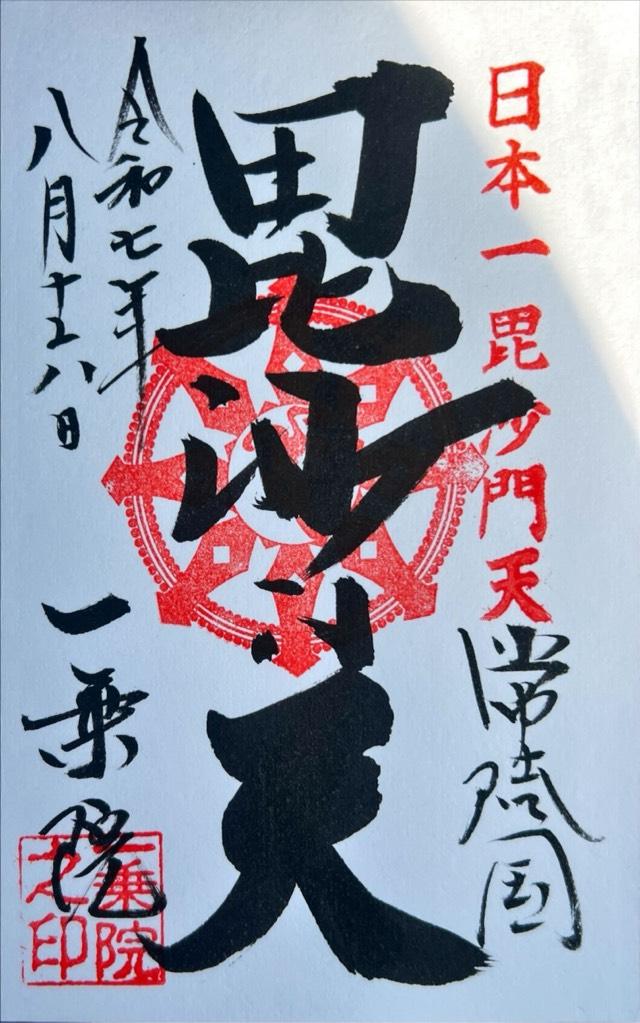 日本一毘沙門天
常陸国
毘沙門天
令和七年
八月十六日
一乗院
一乗院之印